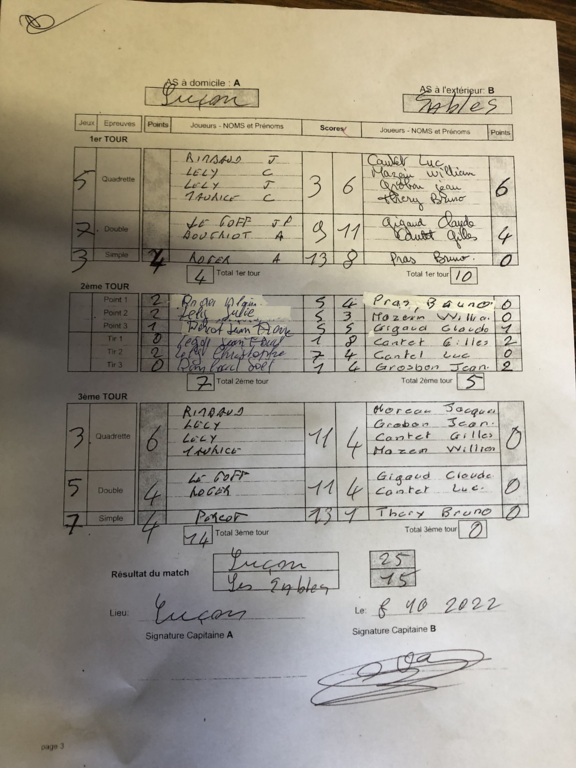 AS à domicile : A
Luçon
AS à l'extérieur: B
Sables
Jeux Epreuves Points Joueurs - NOMS et Prénoms Scores Joueurs - NOMS et Prénoms Points
1er TOUR
5 Quadrette 3 6 6
RINAUD J Cantet Luc
LELY C Mazein William
LELY J Grobon jean
MAURICE C Thery Bruno
7 Double 9 11 4
LE GOFF JP Gigaud Claude
A Cantet Gilles
3 Simple 4 ROGER A 13 8 Pras Bruno 0
4 Total 1er tour Total 1er tour 10
2ème TOUR
Point 1 2 5 4 Pras Bruno 0
Point 2 2 Lely Julie 5 3 Mazein William 0
Point 3 1 Porcot Jean 5 5 Gigaud Claude 1
Tir 1 0 Jean 1 8 Cantet Gilles 2
Tir 2 2 Lely Christophe 7 4 Cantet Luc 0
Tir 3 0 1 4 Grosbon Jean 2
7 Total 2ème tour Total 2ème tour 5
3ème TOUR
3 Quadrette 6 11 4 0
RINAUD Moreau Jacques
LELY Grobon Jean
LELY Cantet Gilles
MAURICE Mazein William
5 Double 4 11 4 0
LE GOFF Gigaud Claude
ROGER Cantet Luc
7 Simple 4 PORCOT 13 1 Thery Bruno 0
14 Total 3ème tour Total 3ème tour 0
Résultat du match
Luçon 25
Les Sables 15
Lieu: Luçon Le: 8 10 2022
Signature Capitaine A Signature Capitaine B
page 3